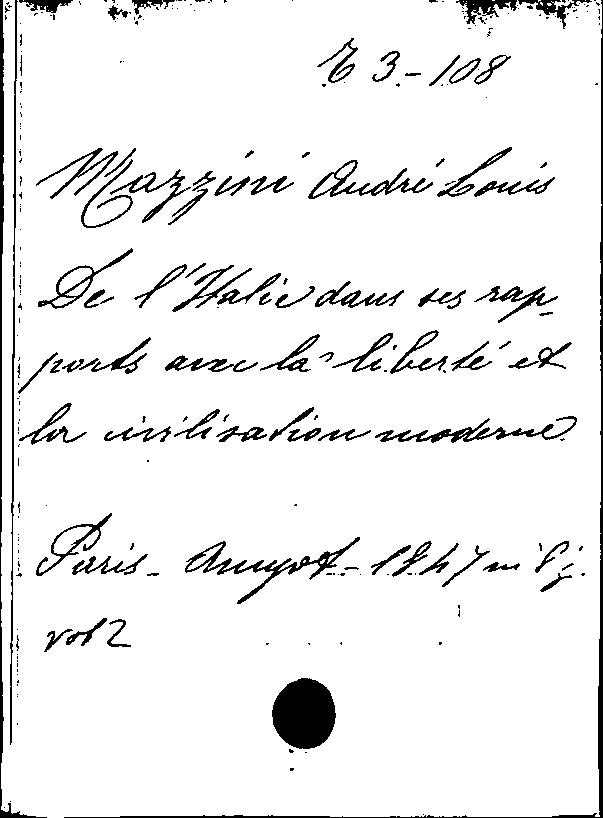 E 3-108
Mazzini André Louis
De l'Italie dans ses rap-
ports avec la liberté et
la civilisation moderne.
Paris - Amyot - 1847 in 8
vol 2